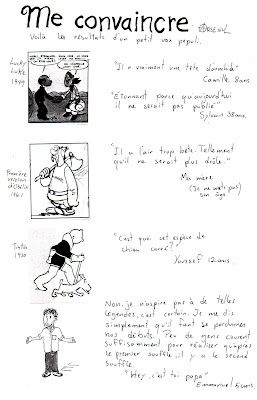 Me convaincre
Voilà les résultats d'un petit vox populi.
Lucky
Luke
1949
"Il a vraiment une tête d'arachide"
Camille 8ans.
"Étonnant parce qu'aujourd'hui
il ne serait pas publié"
Sylvain 38ans.
Première
version
d'Obélix
1961
"Il a l'air trop bête. Tellement
qu'il ne serait plus drôle."
Ma mère.
(Je ne mets pas)
son âge
Tintin
1930
"C'est quoi cet espèce de
chien carré?"
Youssef 12ans.
Non, je n'aspire pas à de telles
légendes, c'est certain. Je me dis
simplement qu'il faut se pardonner
nos débuts. Peu de gens courent
suffisamment pour réaliser qu'après
le premier souffle, il y a le second
souffle.
"Hey, c'est toi papa"
Emmanuel 5ans.